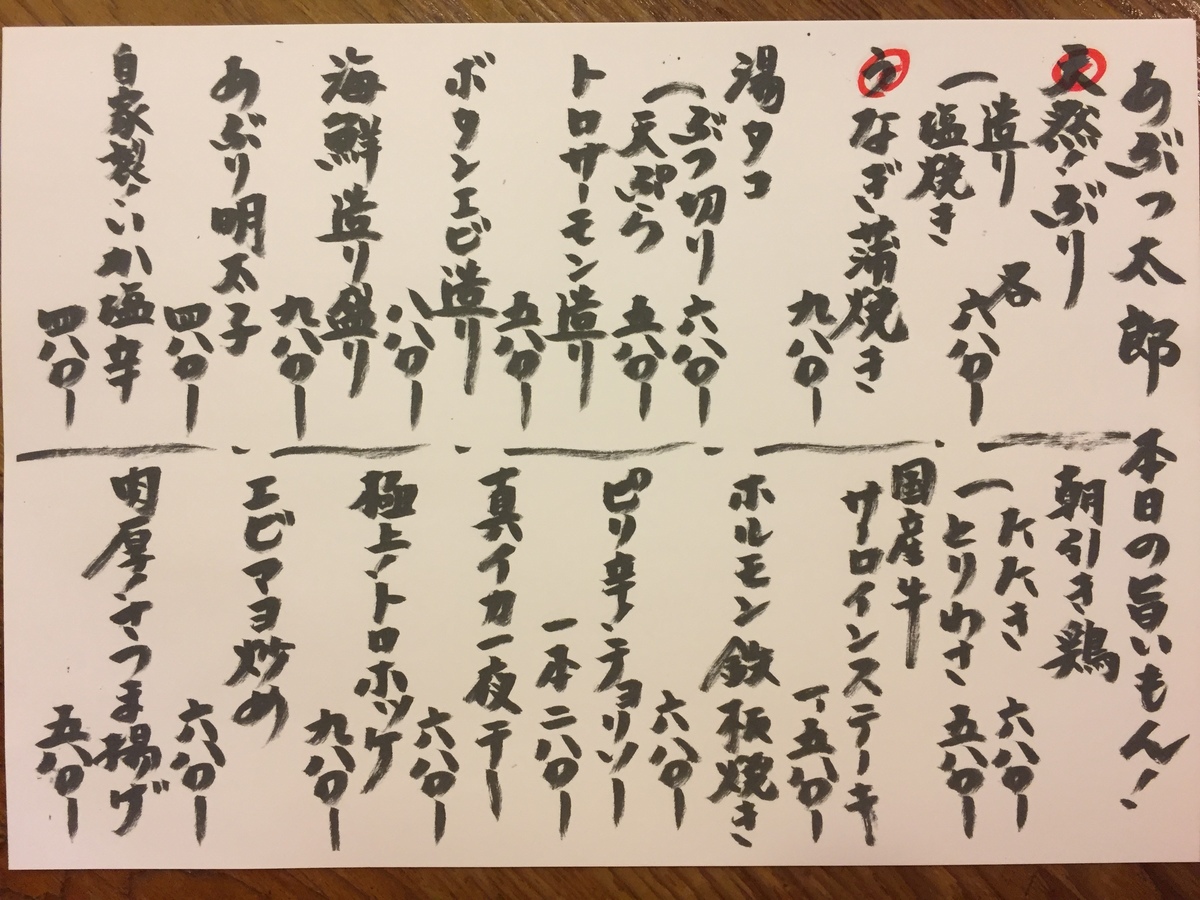 あぶつ太郎 本日の旨いもん！
天然ぶり
造り
塩焼き
各六八〇ー
うなぎ蒲焼き
九八〇ー
湯タコ
ぶつ切り 六八〇ー
天ぷら 五八〇ー
トロサーモン造り
五八〇ー
ボタンエビ造り
八八〇ー
海鮮造り盛り
九八〇ー
あぶり明太子
四八〇ー
自家製いか塩辛
四八〇ー
朝引き鶏
たたき 六八〇ー
とりわさ 五八〇ー
国産牛
サーロインステーキ
一五八〇ー
ホルモン鉄板焼き
六八〇ー
ピリ辛チョリソー
一本二八〇ー
真イカ一夜干し
六八〇ー
極上トロホッケ
九八〇ー
エビマヨ炒め
六八〇ー
肉厚さつま揚げ
五八〇ー